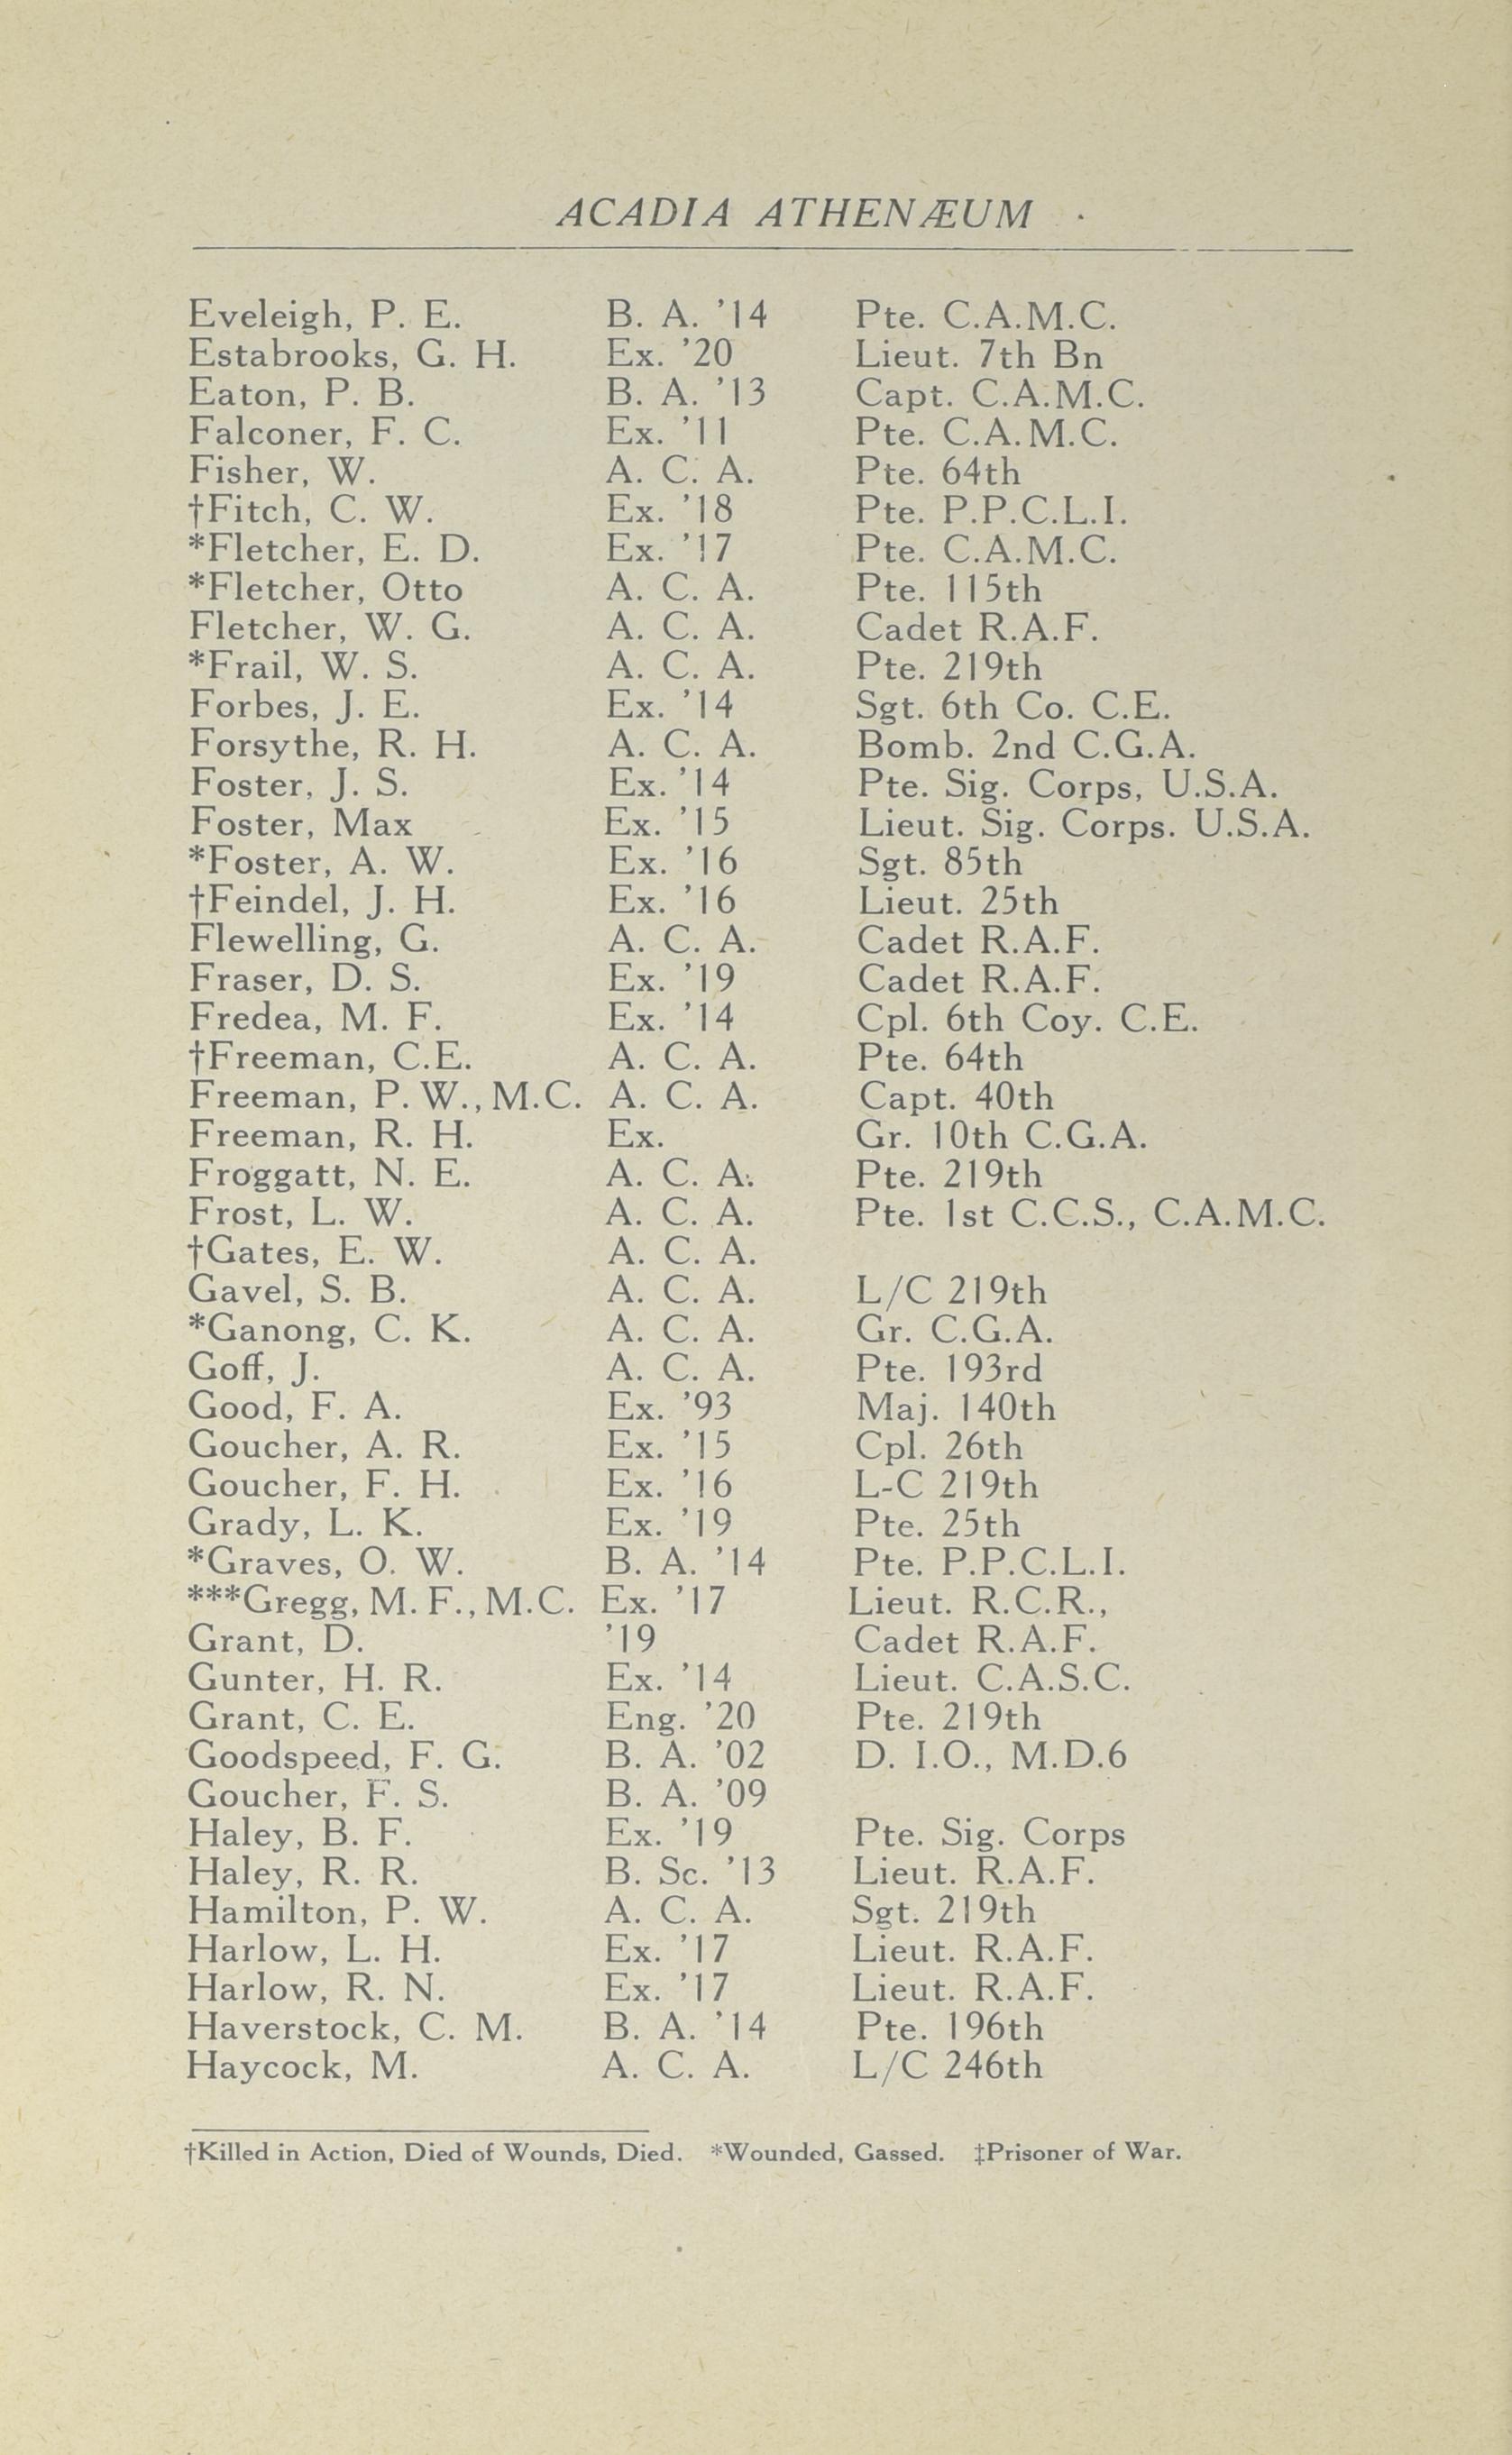 ACADIA ATHENÆUM
Eveleigh, P. E. B. A. ’14 Pte. C.A.M.C.
Estabrooks, G. H. Ex. ’20 Lieut. 7th Bn
Eaton, P. B. B. A. ’13 Capt. C.A.M.C.
Falconer, F. C. Ex. ’11 Pte. C.A.M.C.
Fisher, W. A. C. A. Pte. 64th
†Fitch, C. W. Ex. ’18 Pte. P.P.C.L.I.
*Fletcher, E. D. Ex. ’17 Pte. C.A.M.C.
*Fletcher, Otto A. C. A. Pte. 115th
Fletcher, W. G. A. C. A. Cadet R.A.F.
*Frail, W. S. A. C. A. Pte. 219th
Forbes, J. E. Ex. ’14 Sgt. 6th Co. C.E.
Forsythe, R. H. A. C. A. Bomb. 2nd C.G.A.
Foster, J. S. Ex. ’14 Pte. Sig. Corps, U.S.A.
Foster, Max Ex. ’15 Lieut. Sig. Corps. U.S.A.
*Foster, A. W. Ex. ’16 Sgt. 85th
†Feindel, J. H. Ex. ’16 Lieut. 25th
Flewelling, G. A. C. A. Cadet R.A.F.
Fraser, D. S. Ex. ’19 Cadet R.A.F.
Fredea, M. F. Ex. ’14 Cpl. 6th Coy. C.E.
†Freeman, C.E. A. C. A. Pte. 64th
Freeman, P. W., M.C. A. C. A. Capt. 40th
Freeman, R. H. Ex. Gr. 10th C.G.A.
Froggatt, N. E. A. C. A. Pte. 219th
Frost, L. W. A. C. A. Pte. 1st C.C.S., C.A.M.C.
†Gates, E. W. A. C. A.
Gavel, S. B. A. C. A. L/C 219th
*Ganong, C. K. A. C. A. Gr. C.G.A.
Goff, J. A. C. A. Pte. 193rd
Good, F. A. Ex. ’93 Maj. 140th
Goucher, A. R. Ex. ’15 Cpl. 26th
Goucher, F. H. Ex. ’16 L-C 219th
Grady, L. K. Ex. ’19 Pte. 25th
*Graves, O. W. B. A. ’14 Pte. P.P.C.L.I.
***Gregg, M. F., M.C. Ex. ’17 Lieut. R.C.R.,
Grant, D. ’19 Cadet R.A.F.
Gunter, H. R. Ex. ’14 Lieut. C.A.S.C.
Grant, C. E. Eng. ’20 Pte. 219th
Goodspeed, F. G. B. A. ’02 D. I.O., M.D.6
Goucher, F. S. B. A. ’09
Haley, B. F. Ex. ’19 Pte. Sig. Corps
Haley, R. R. B. Sc. ’13 Lieut. R.A.F.
Hamilton, P. W. A. C. A. Sgt. 219th
Harlow, L. H. Ex. ’17 Lieut. R.A.F.
Harlow, R. N. Ex. ’17 Lieut. R.A.F.
Haverstock, C. M. B. A. ’14 Pte. 196th
Haycock, M. A. C. A. L/C 246th
†Killed in Action, Died of Wounds, Died. *Wounded, Gassed. ‡Prisoner of War.